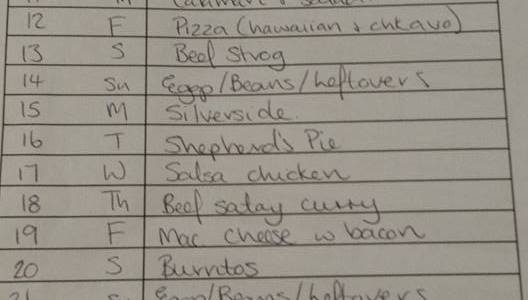 12 F Pizza (hawaiian & chkavo)
13 S Beef Strog
14 Su Eggs/Beans/Leftovers
15 M Silverside.
16 T Shepherd's Pie
17 W Salsa chicken
18 Th Beef satay curry
19 F Mac cheese w bacon
20 S Burritos
21 Su Eggs/Beans/leftovers